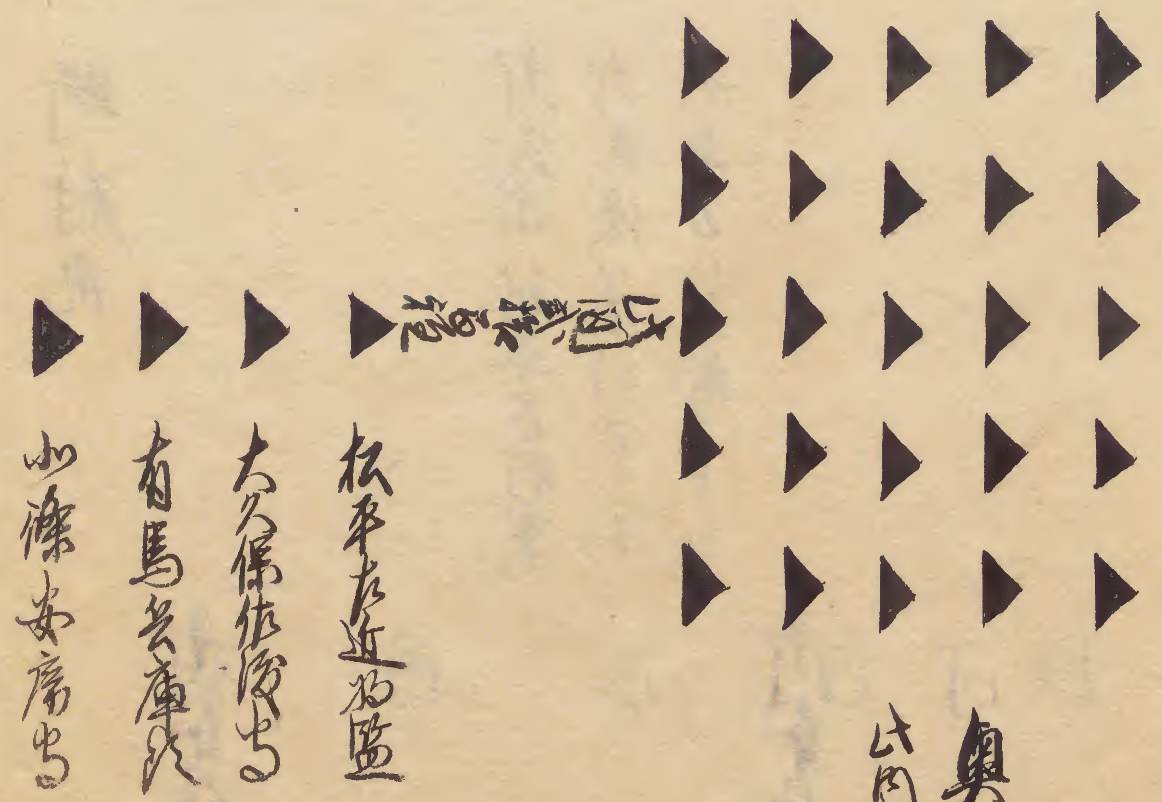 奥
此内
此間貳拾間程
松平左近将監
大久保佐渡守
有馬兵庫頭
北條安房守